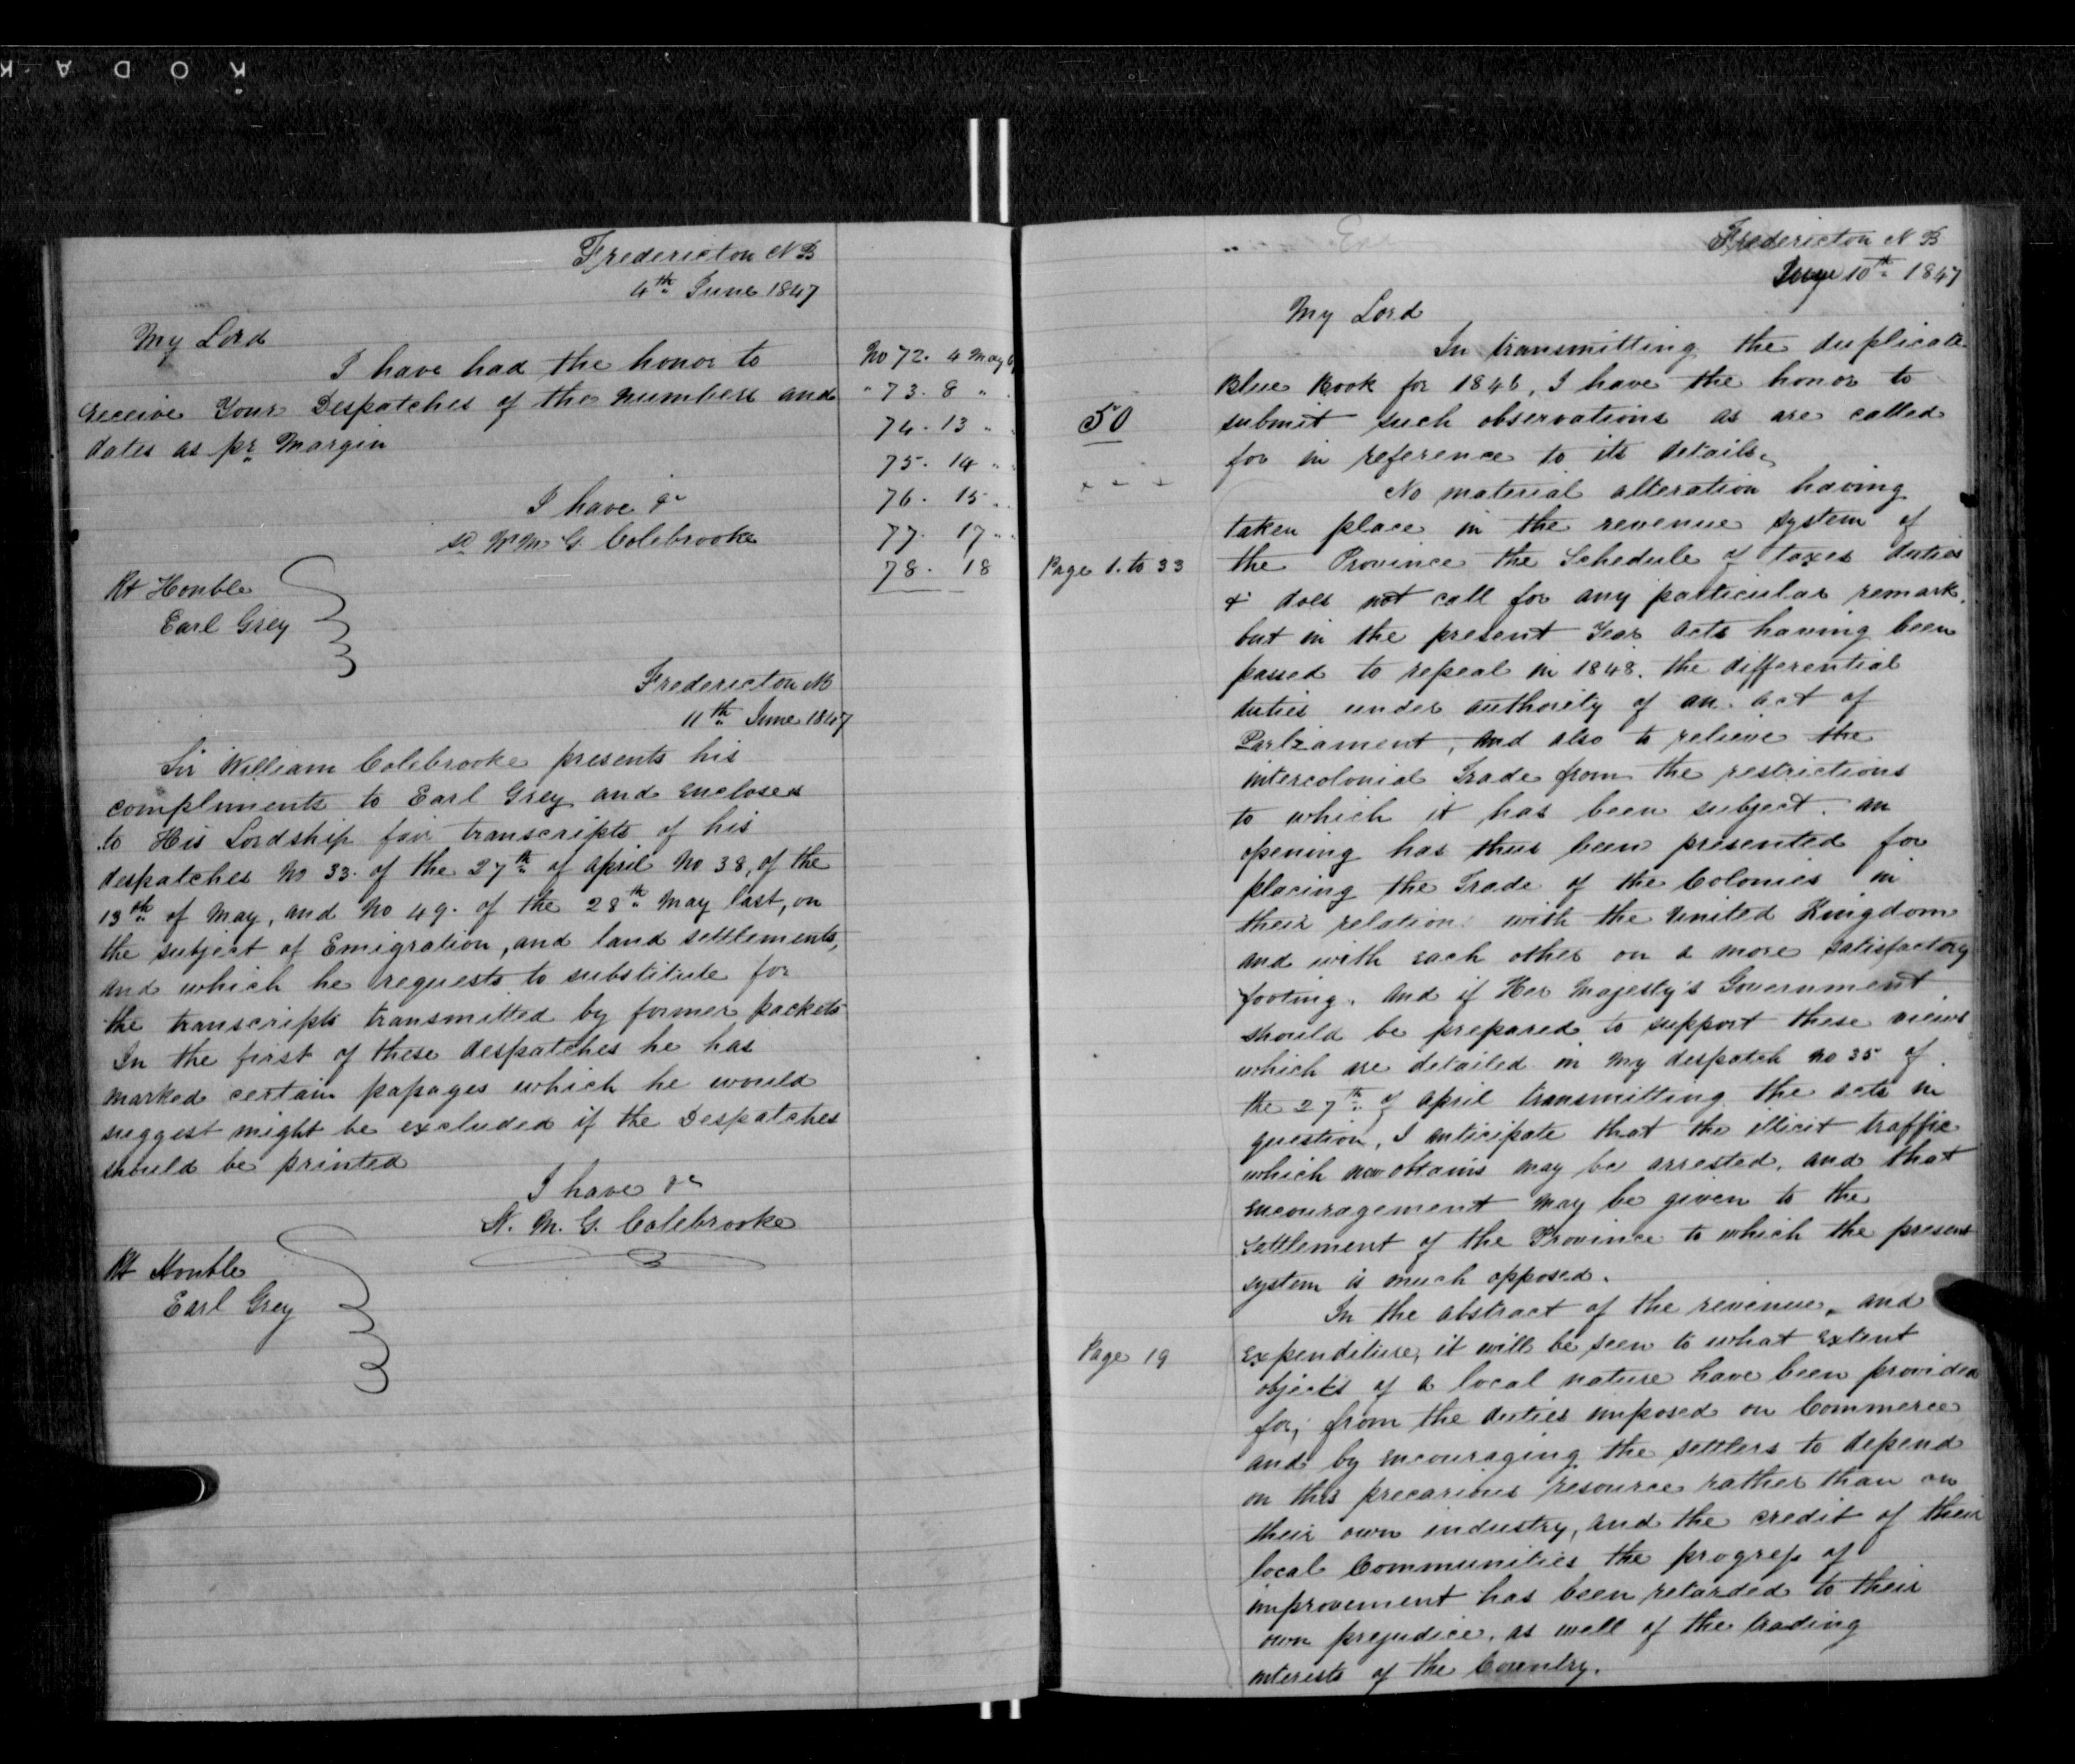 KODAK
Fredericton NB
4th June 1847
My Lord
I have had the honor to
receive Your Despatches of the Numbers and
dates as pr Margin
No 72. 4 May
" 73. 8 "
74. 13 "
75. 14 "
76. 15 "
77. 17 "
78. 18
I have &c
sd Wm M. G. Colebrooke
Rt Honble
Earl Grey
Fredericton NB
11th June 1847
Sir William Colebrooke presents his
compliments to Earl Grey and encloses
to His Lordship fair transcripts of his
despatches No 33. of the 27th of April No 38, of the
13th of May, and No 49. of the 28th May last, on
the subject of Emigration, and land settlements,
and which he requests to substitute for
the transcripts transmitted by former packets
In the first of these despatches he has
marked certain passages which he would
suggest might be excluded if the Despatches
should be printed
I have &c
W. M. G. Colebrooke
Rt Honble
Earl Grey
Fredericton NB
June 10th 1847
My Lord
In transmitting the duplicate
Blue Book for 1846, I have the honor to
50
submit such observations as are called
for in reference to its details.
No material alteration having
taken place in the revenue system of
Page 1. to 33
the Province the Schedule of taxes duties
& does not call for any particular remark.
but in the present Year Acts having been
passed to repeal in 1848. the differential
duties under authority of an Act of
Parliament, and also to relieve the
intercolonial Trade from the restrictions
to which it has been subject. an
opening has thus been presented for
placing the Trade of the Colonies in
their relation with the United Kingdom
and with each other on a more satisfactory
footing. And if Her Majesty's Government
should be prepared to support these views
which are detailed in my despatch No 35 of
the 27th of April transmitting the acts in
question, I anticipate that the illicit traffic
which now obtains may be arrested, and that
encouragement may be given to the
Settlement of the Province to which the present
system is much opposed.
In the abstract of the revenue, and
Page 19
Expenditure, it will be seen to what extent
objects of a local nature have been provided
for, from the duties imposed on Commerce
and by encouraging the settlers to depend
on this precarious resource rather than on
their own industry, and the credit of their
local Communities the progress of
improvement has been retarded to their
own prejudice, as well of the trading
interests of the Country.